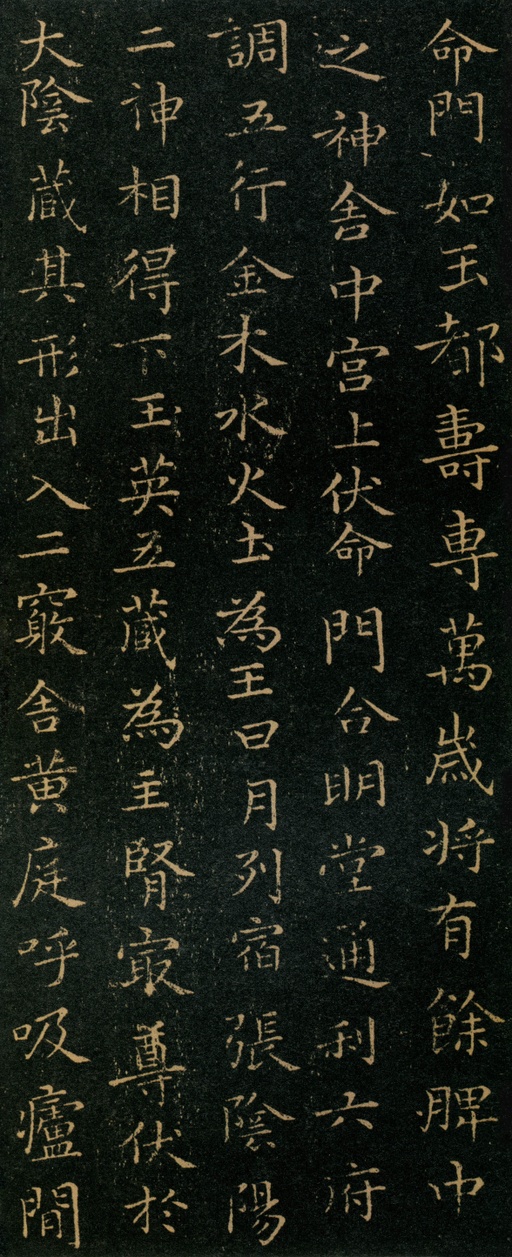 命門如玉都壽專萬歲将有餘脾中
之神舍中宫上伏命門合明堂通利六府
調五行金木水火土為王日月列宿張陰陽
二神相得下玉英五蔵為主腎寂尊伏於
大陰蔵其形出入二竅舍黄庭呼吸廬間